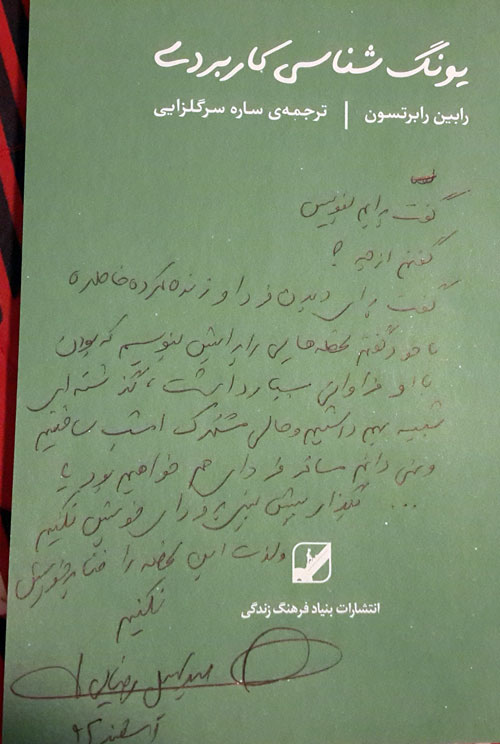 یونگ شناسی کاربردی
رابین رابرتسون | ترجمه‌ی ساره سرگلزایی
گفت برایم بنویس
گفتم از چه ؟
گفت برای دیدن فردا و زنده کردن خاطره
با خود گفتم لحظه‌هایی را برایش بنویسم که بودن
با او فراوانی بسیار داشت ، گذشته‌ای
شبیه بهم داشتیم و حالی مشترک امشب ساختیم
و نمی دانم مسافر فردای هم خواهیم بود ؟
... نگذار پیش بینی فردای خویش نکنیم
و لذت این لحظه را فنا
نکنیم
انتشارات بنیاد فرهنگ زندگی
سهیل رضایی
اسفند ۹۲